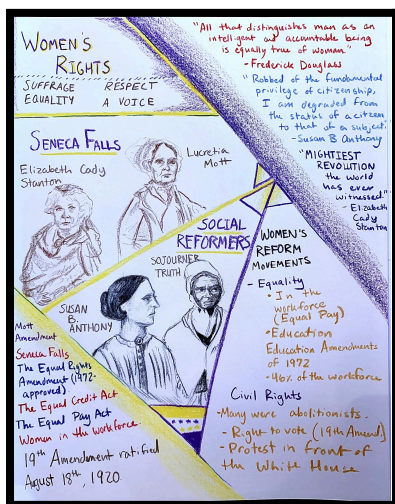 WOMEN'S
RIGHTS
SUFFRAGE RESPECT
EQUALITY A VOICE
"All that distinguishes man as an
intelligent and accountable being
is equally true of woman."
- Frederick Douglass
"Robbed of the fundamental
privilege of citizenship,
I am degraded from
the status of a citizen
to that of a subject."
- Susan B Anthony
"MIGHTIEST
REVOLUTION
the world
has ever
witnessed."
- Elizabeth
Cady
Stanton
SENECA FALLS
Elizabeth Cady
Stanton
Lucretia
Mott
SOCIAL
REFORMERS
SOJOURNER
TRUTH
SUSAN
B.
ANTHONY
WOMEN'S
REFORM
MOVEMENTS
- Equality
• In the
workforce
(Equal Pay)
• Education
Education Amendments
of 1972
- 46% of the workforce
Civil Rights
- Many were abolitionists.
- Right to vote (19th Amend)
- Protest in front of
the White House
Mott
Amendment
Seneca Falls
The Equal Rights
Amendment (1972-
approved)
The Equal Credit Act
The Equal Pay Act
Women in the Workforce
19th Amendment ratified
August 18th, 1920